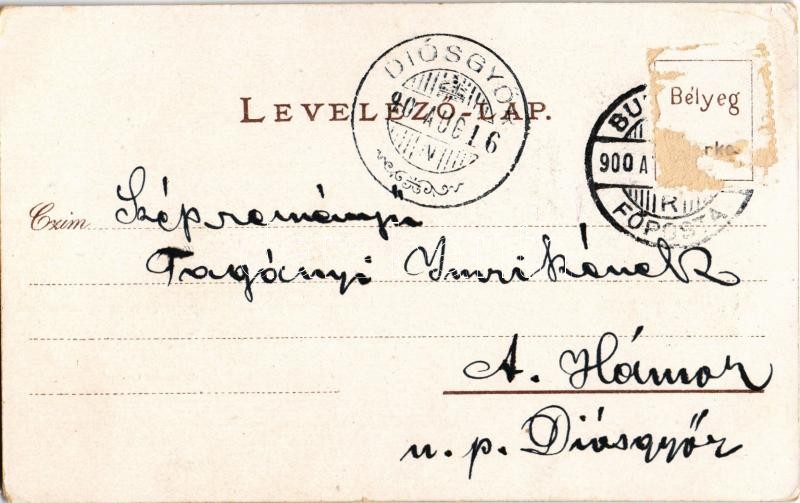 DIÓSGYŐR
900 AUG 16
N
LEVELEZŐ-LAP.
BU
900 A
R
FŐPOSTA
Bélyeg
rke
Czim
Szépreményű
Tagányi Imrikének
A. Hámor
u. p. Diósgyőr